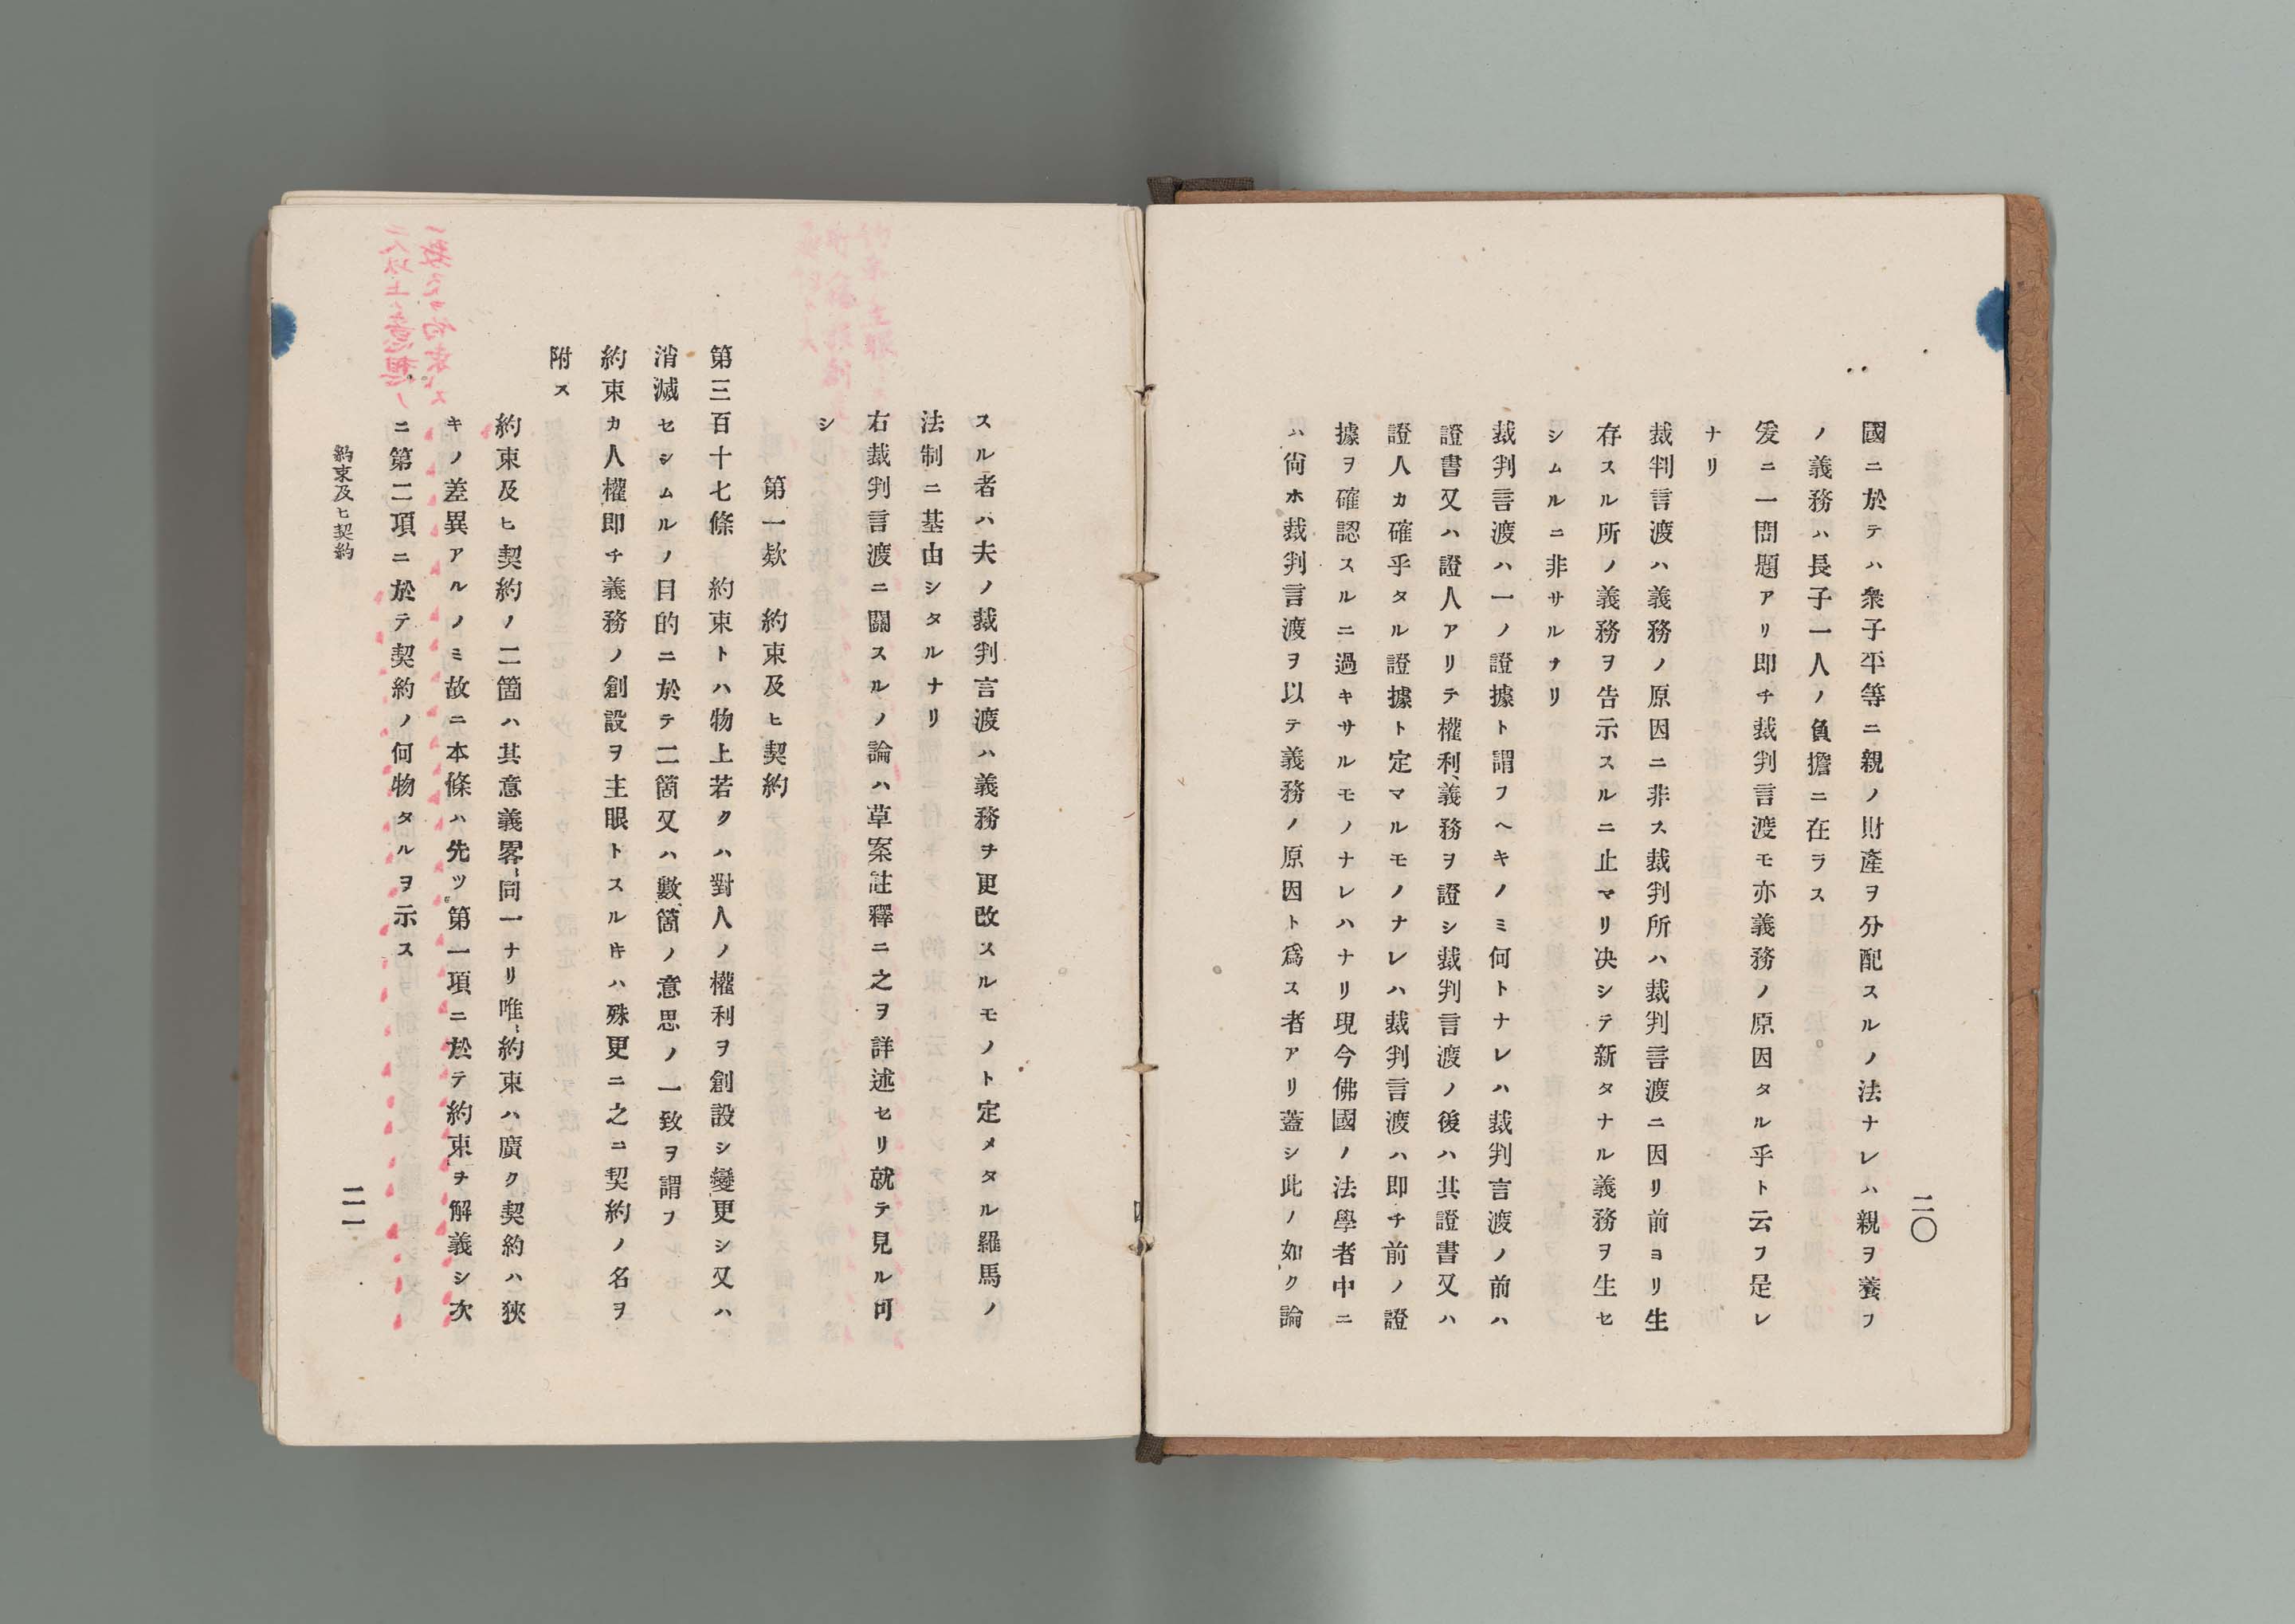 國ニ於テハ衆子平等ニ親ノ財產ヲ分配スルノ法ナレハ親ヲ養フ
ノ義務ハ長子一人ノ負擔ニ在ラス
爰ニ一問題アリ即チ裁判言渡モ亦義務ノ原因タル乎ト云フ是レ
ナリ
裁判言渡ハ義務ノ原因ニ非ス裁判所ハ裁判言渡ニ因リ前ヨリ生
存スル所ノ義務ヲ告示スルニ止マリ决シテ新タナル義務ヲ生セ
シムルニ非サルナリ
裁判言渡ハ一ノ證據ト謂フヘキノミ何トナレハ裁判言渡ノ前ハ
證書又ハ證人アリテ權利、義務ヲ證シ裁判言渡ノ後ハ其證書又ハ
證人カ確乎タル證據ト定マルモノナレハ裁判言渡ハ即チ前ノ證
據ヲ確認スルニ過キサルモノナレハナリ現今佛國ノ法學者中ニ
ハ尙ホ裁判言渡ヲ以テ義務ノ原因ト爲ス者アリ蓋シ此ノ如ク論
二〇
スル者ハ夫ノ裁判言渡ハ義務ヲ更改スルモノト定メタル羅馬ノ
法制ニ基由シタルナリ
右裁判言渡ニ關スルノ論ハ草案註釋ニ之ヲ詳述セリ就テ見ル可
シ
第一欵 約束及ヒ契約
第三百十七條 約束トハ物上若クハ對人ノ權利ヲ創設シ變更シ又ハ
消滅セシムルノ目的ニ於テ二箇又ハ數箇ノ意思ノ一致ヲ謂フ
約束カ人權即チ義務ノ創設ヲ主眼トスルキハ殊更ニ之ニ契約ノ名ヲ
附ス
約束及ヒ契約ノ二箇ハ其意義畧、同一ナリ唯、約束ハ廣ク契約ハ狹
キノ差異アルノミ故ニ本條ハ先ツ第一項ニ於テ約束ヲ解義シ次
ニ第二項ニ於テ契約ノ何物タルヲ示ス
約束及ヒ契約
二一